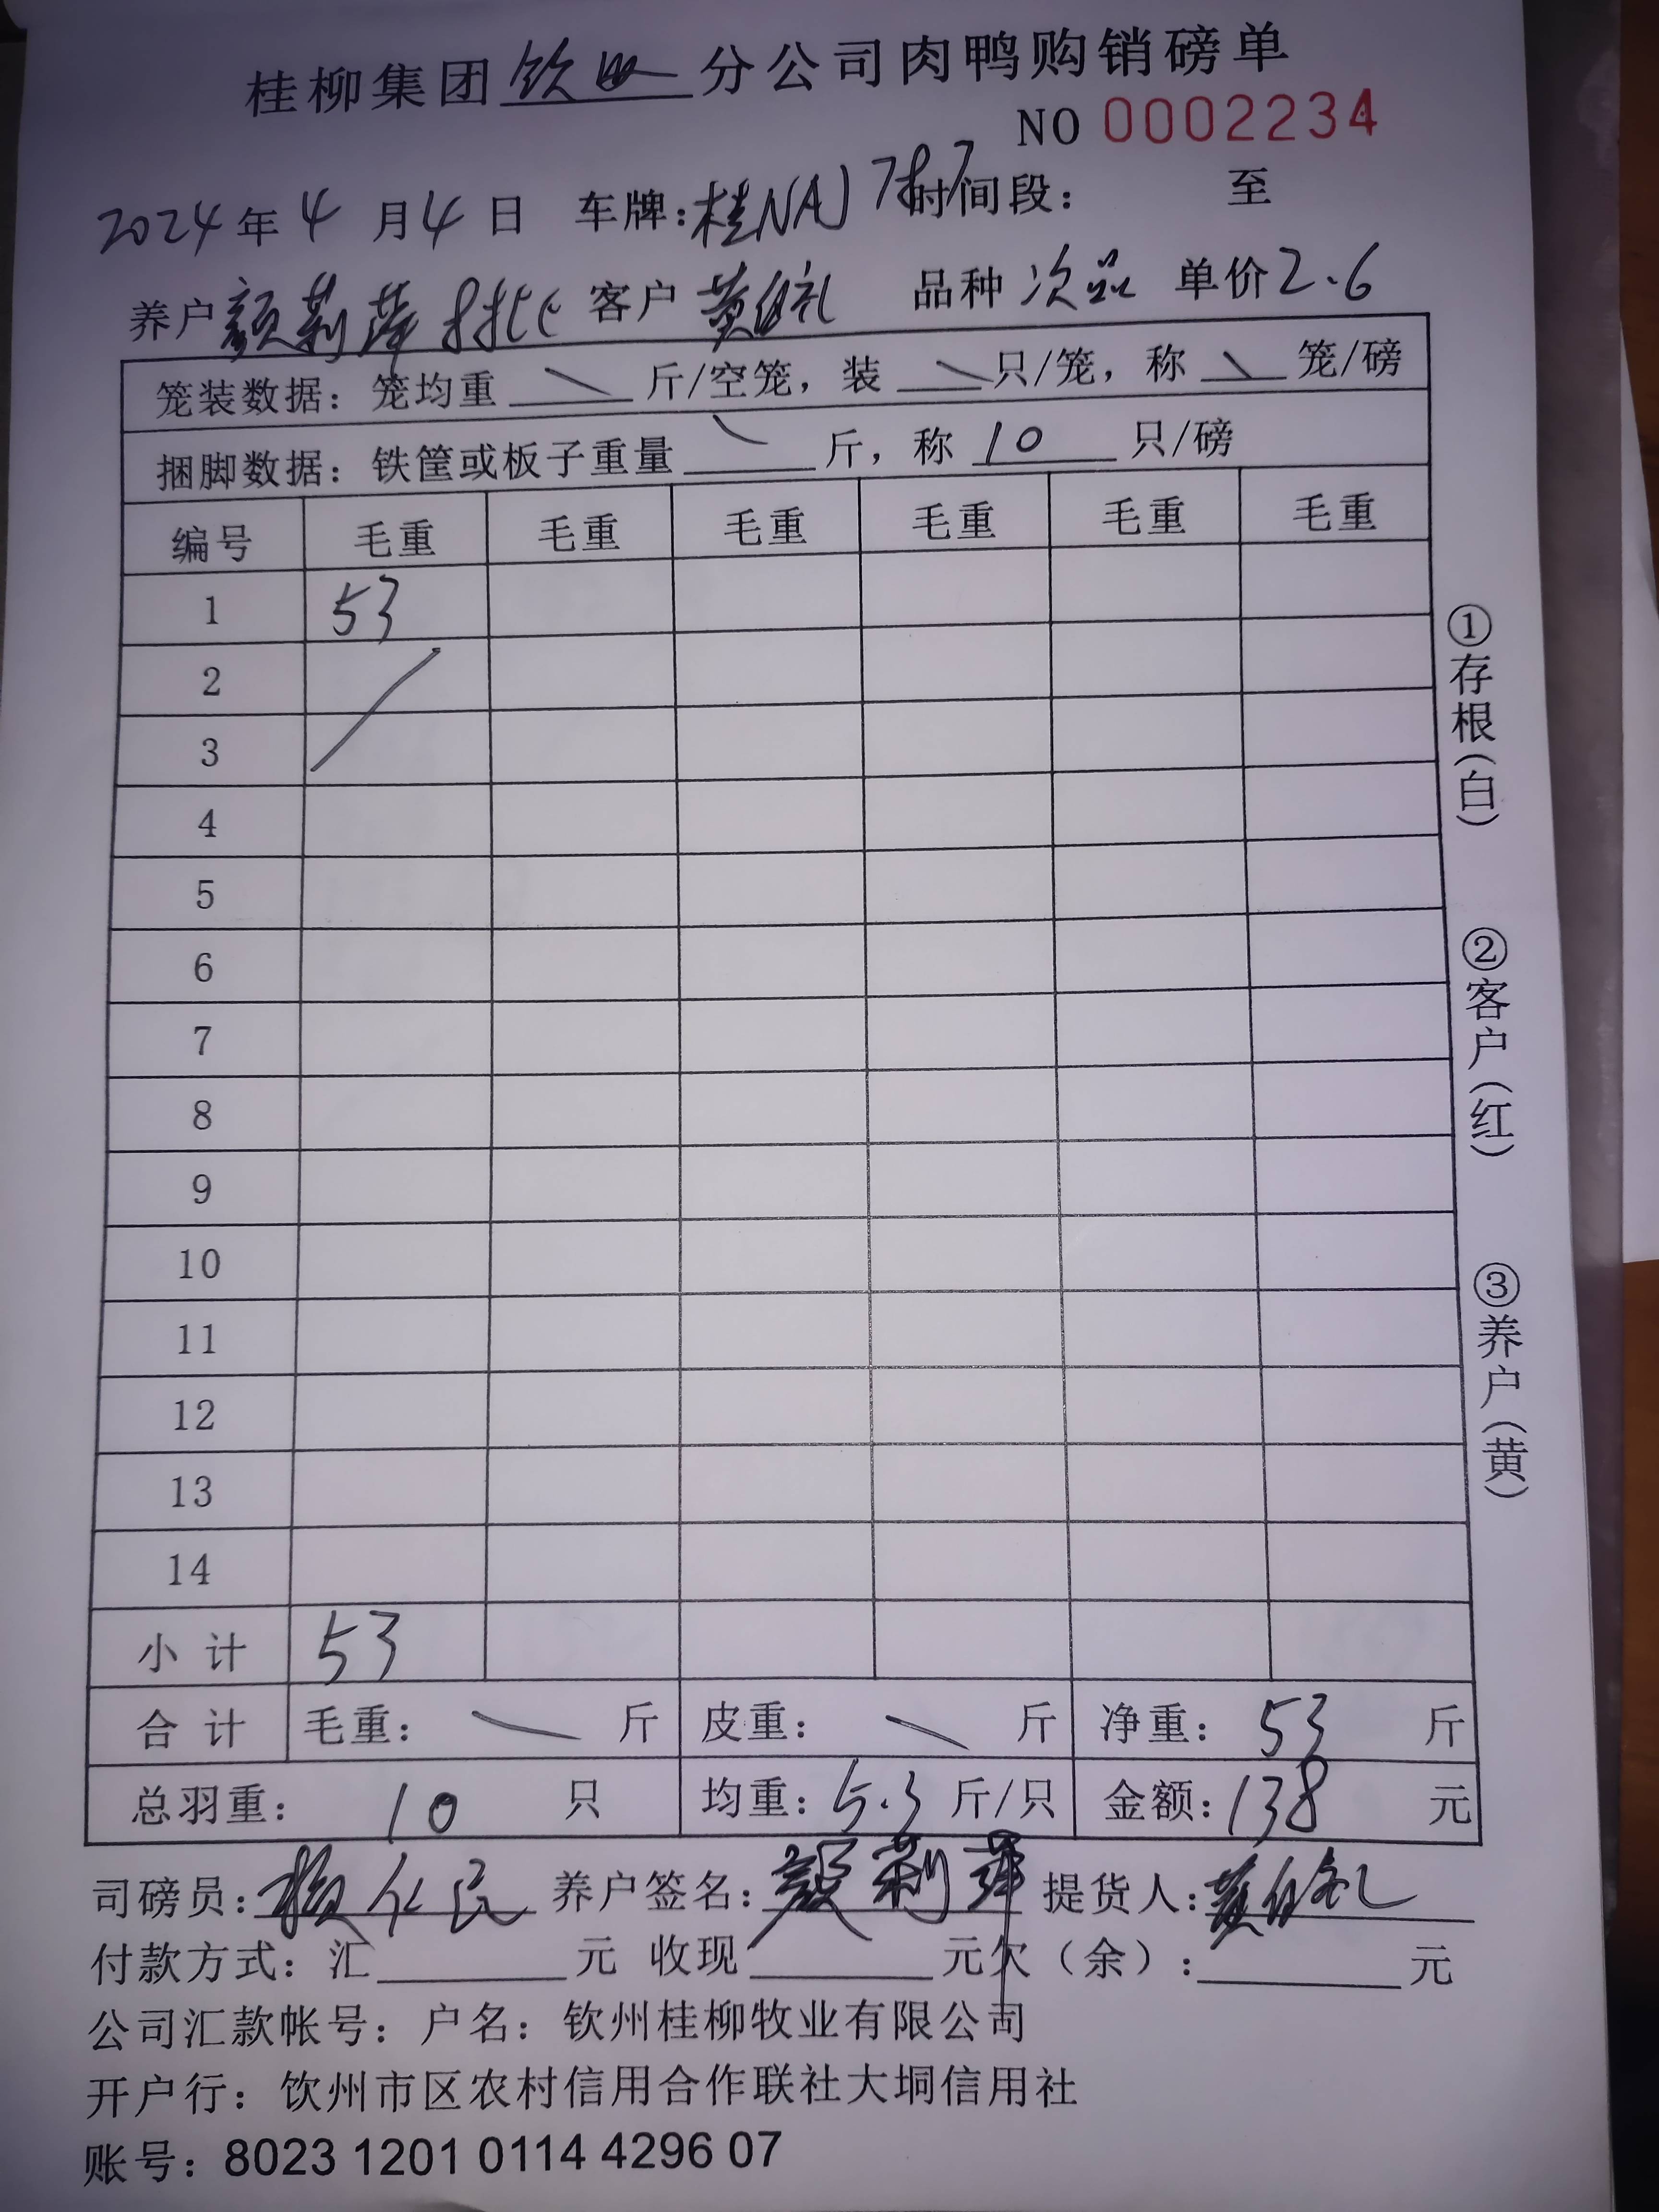 桂柳集团钦州分公司肉鸭购销磅单
NO 0002234
2024年4月4日 车牌:桂NAJ 时间段: 至
养户颜莉萍 客户黄 品种次品 单价2.6
笼装数据: 笼均重 \ 斤/空笼, 装 \ 只/笼, 称 \ 笼/磅
捆脚数据: 铁筐或板子重量 \ 斤, 称 10 只/磅
编号 毛重 毛重 毛重 毛重 毛重 毛重
1 53
2
3
4
5
6
7
8
9
10
11
12
13
14
小计 53
合计 毛重: \ 斤 皮重: \ 斤 净重: 53 斤
总羽重: 10 只 均重: 5.3 斤/只 金额: 138 元
①存根(白)
②客户(红)
③养户(黄)
司磅员: 养户签名: 颜莉萍 提货人: 黄
付款方式: 汇 元 收现 元欠(余): 元
公司汇款帐号: 户名: 钦州桂柳牧业有限公司
开户行: 钦州市区农村信用合作联社大垌信用社
账号: 8023 1201 0114 4296 07